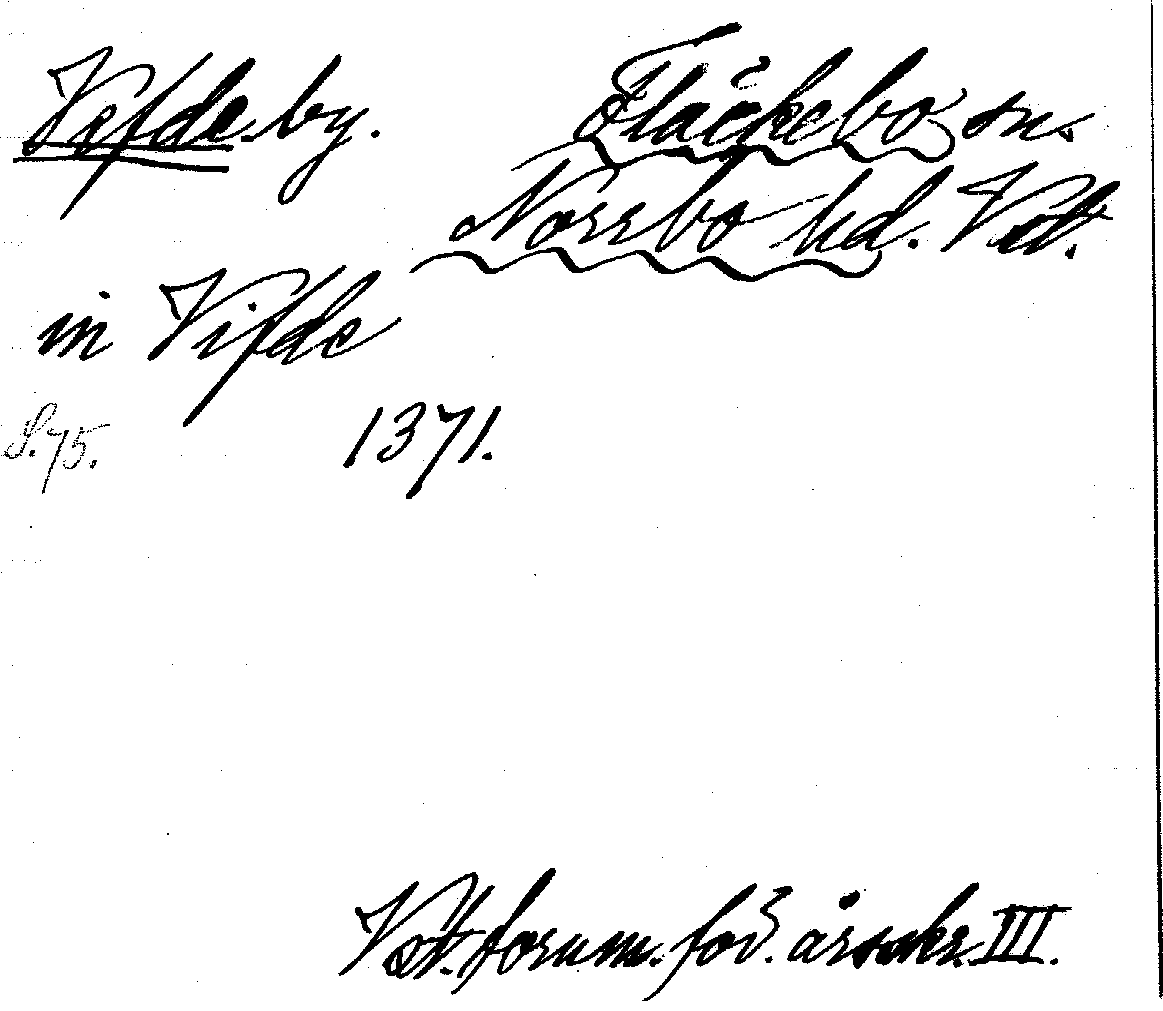 Vifde by. Fläckebo sn.
Norrbo hd. Vstl.
in Vifde
S. 75. 1371.
Vstl. fornm. för. årsskr. III.